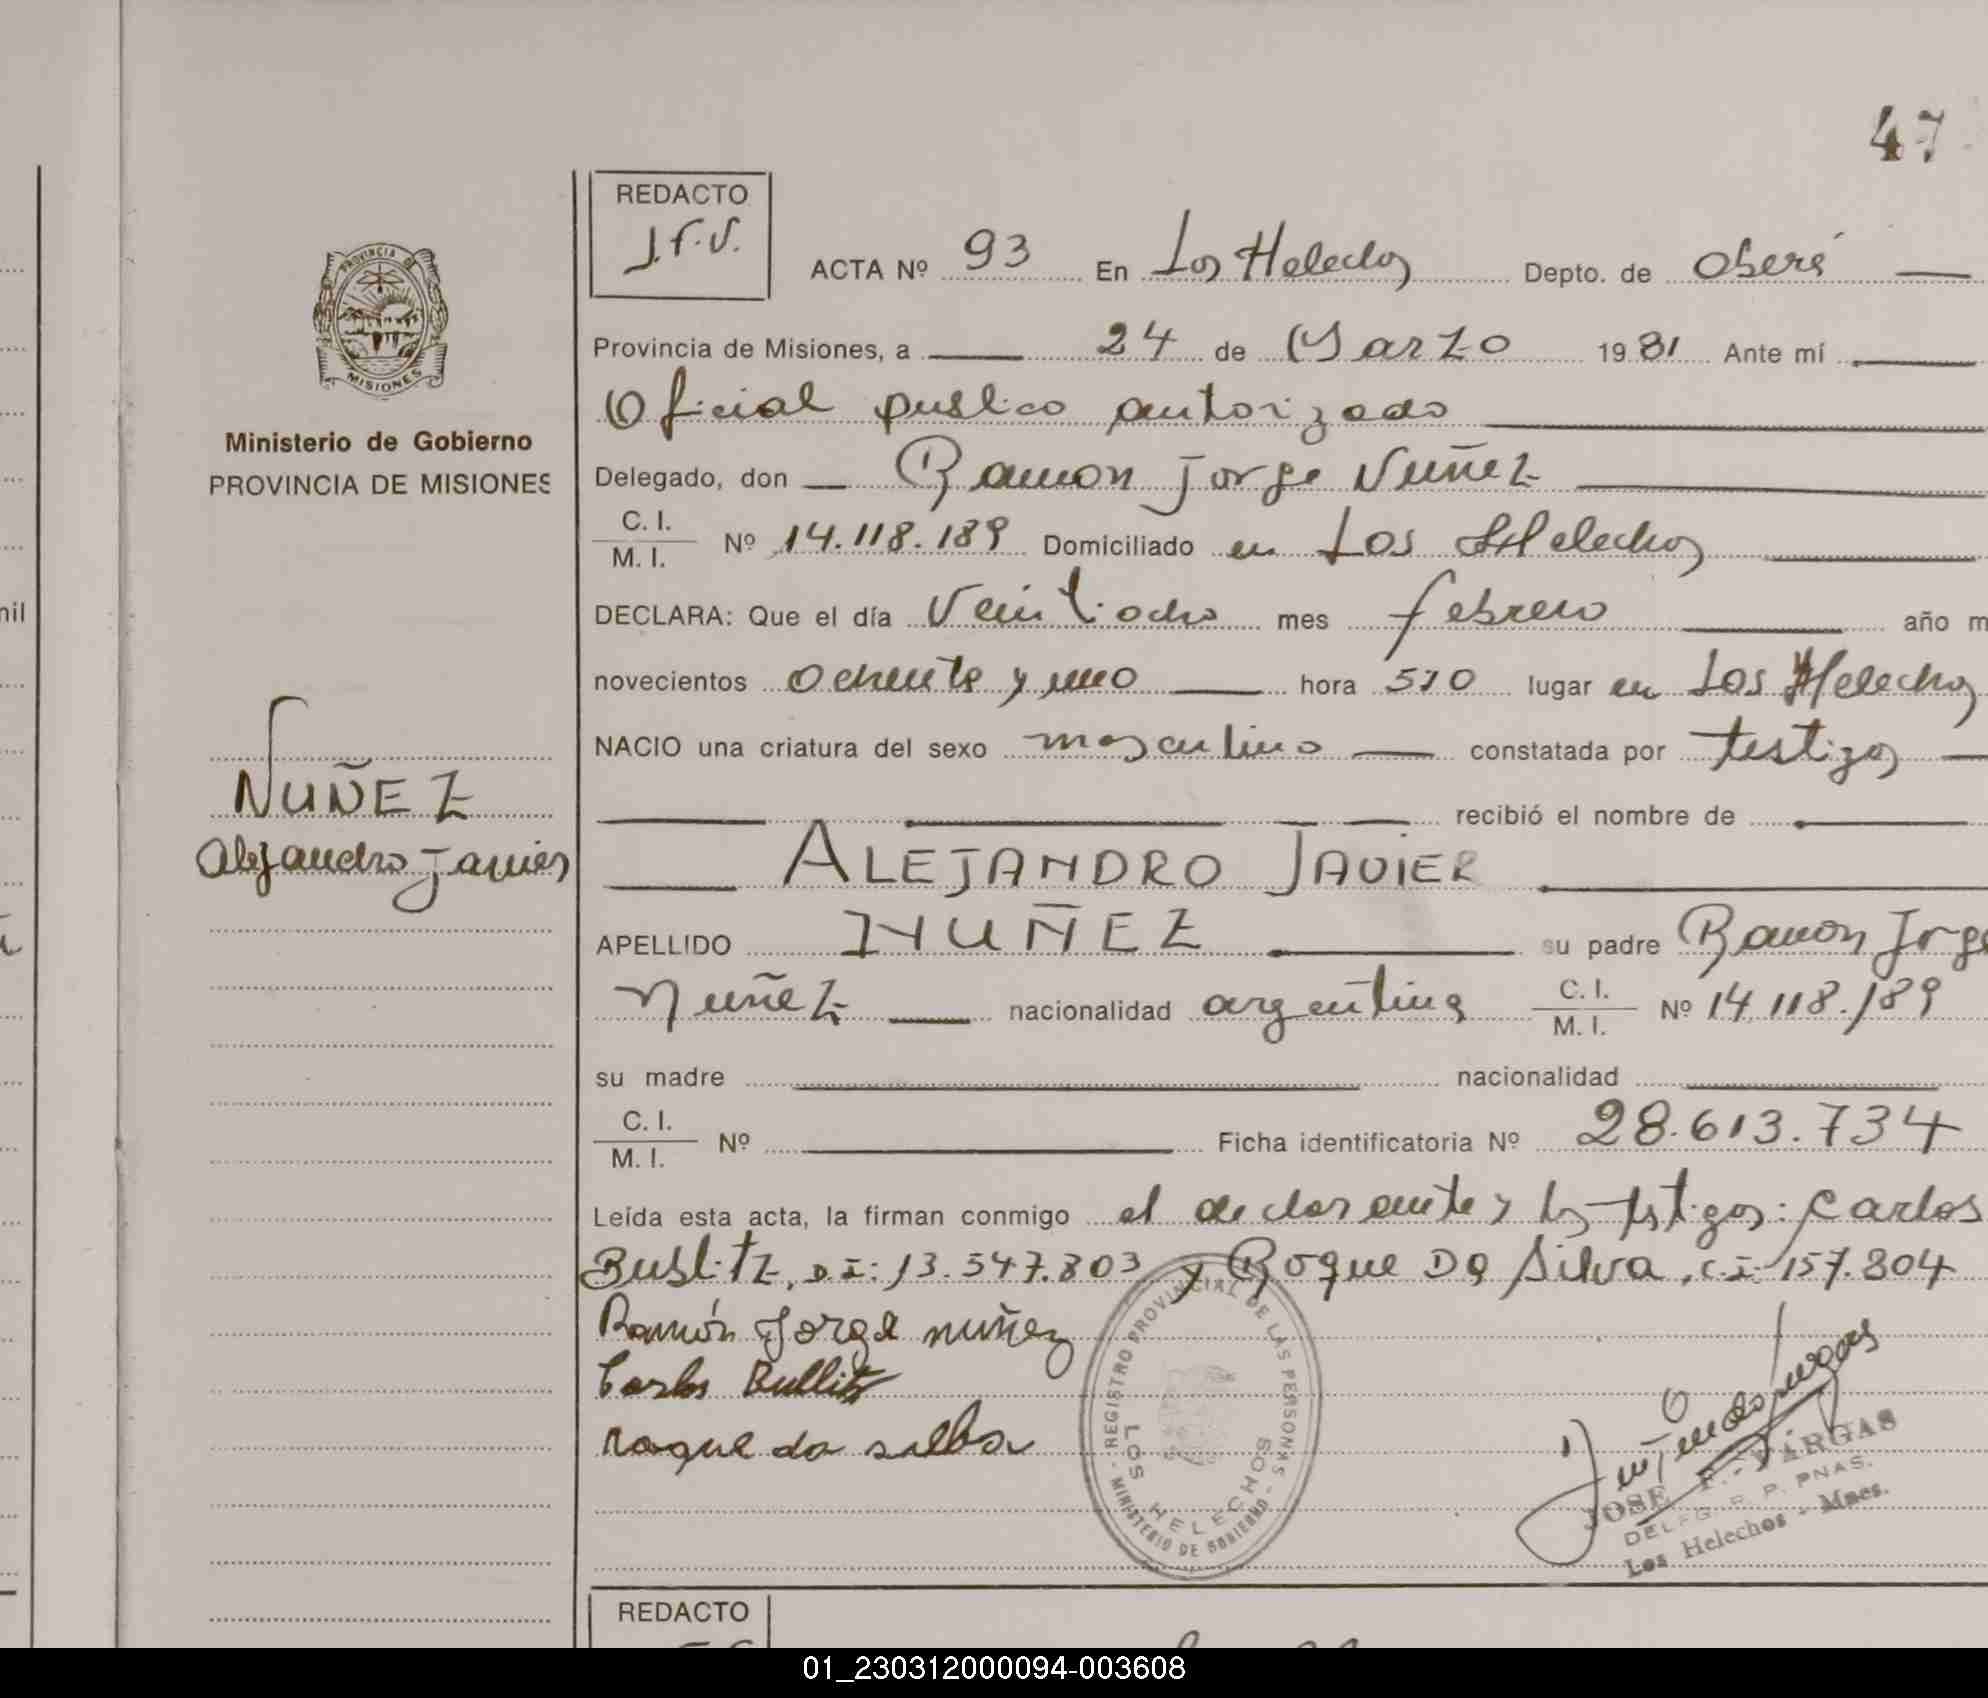 47
REDACTO
J.F.V.
ACTA Nº 93 En Los Helechos Depto. de Oberá
Provincia de Misiones, a 24 de Marzo 1981 Ante mí
Oficial publico autorizado
Delegado, don Ramon Jorge Nuñez
C. I.
M. I. Nº 14.118.189 Domiciliado en Los Helechos
DECLARA: Que el día Veintiocho mes febrero año m
novecientos ochenta y uno hora 510 lugar en Los Helechos
NACIO una criatura del sexo masculino constatada por testigos
recibió el nombre de
ALEJANDRO JAVIER
APELLIDO NUÑEZ su padre Ramon Jorge
Nuñez nacionalidad argentina C. I.
M. I. Nº 14.118.189
su madre nacionalidad
C. I.
M. I. Nº Ficha identificatoria Nº 28.613.734
Leída esta acta, la firman conmigo el declarante y los testigos: Carlos
Bublitz, D.I: 13.547.803 y Roque Da Silva, C.I: 157.804
Ramón Jorge nuñez
Carlos Bullitz
roque da silba
REGISTRO PROVINCIAL DE LAS PERSONAS
- MINISTERIO DE GOBIERNO -
LOS HELECHOS
JOSE F. VARGAS
DELEG. R. P. PNAS.
Los Helechos - Mnes.
PROVINCIA D
MISIONES
Ministerio de Gobierno
PROVINCIA DE MISIONES
NUÑEZ
Alejandro Javier
nil
REDACTO
01_230312000094-003608